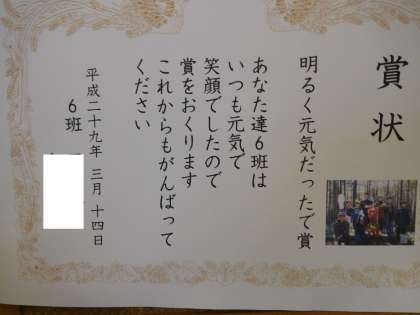 賞状
明るく元気だったで賞
あなた達6班は
いつも元気で
笑顔でしたので
賞をおくります
これからもがんばって
ください
平成二十九年 三月 十四日
6班